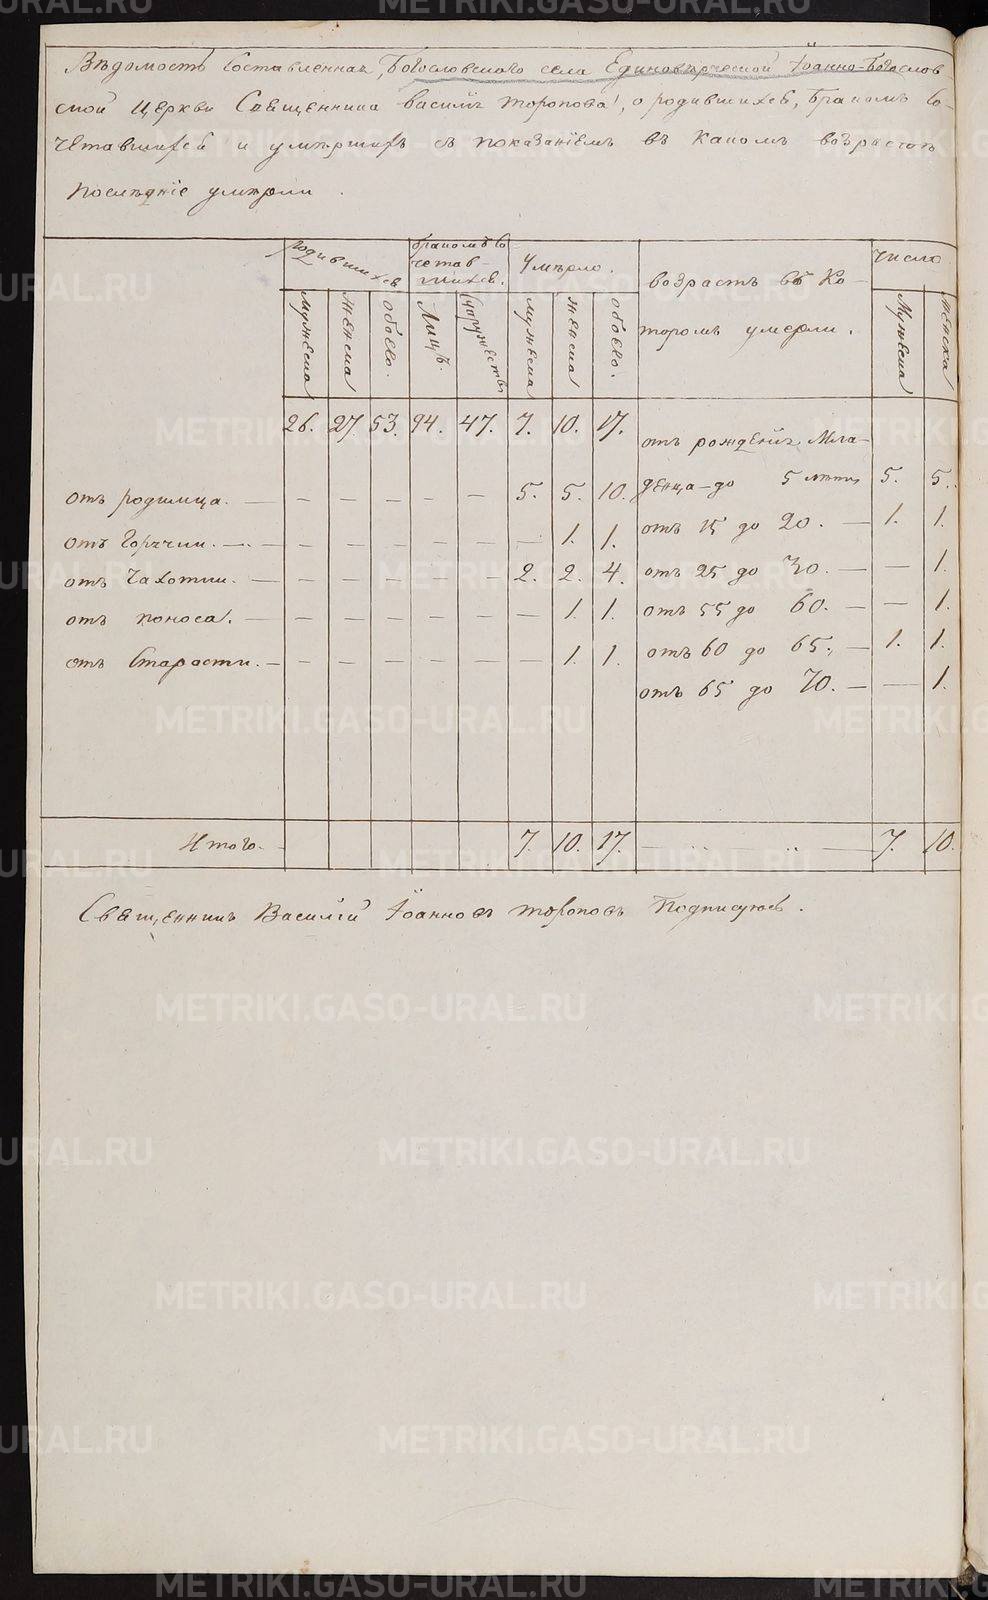 Вѣдомость составленная, Богословского села Единовѣрческой Іоанно-Богослов
ской Церкви Священника Василія Торопова, о родившихся, бракомъ со-
четавшихся и умѣршихъ съ показаніемъ въ какомъ возрастѣ
послѣдніе умѣрли.
родившихся
бракомъ со-
четав-
шихся.
Умѣрло.
возрастъ въ ко-
торомъ умерли.
Число
Мужеска
Женска
Обоего.
Лицъ.
Супружествъ
мужеска
женска
обоего.
Мужеска
Женска
26. 27. 53. 94. 47. 7. 10. 17. отъ рожденія мла-
отъ родимца. — — — — — — 5. 5. 10. денца-до 5 лѣтъ 5. 5.
отъ Горячки. — — — — — — — 1. 1. отъ 15 до 20. — 1. 1.
отъ Чахотки. — — — — — — 2. 2. 4. отъ 25 до 30. — — 1.
отъ поноса. — — — — — — — 1. 1. отъ 55 до 60. — — 1.
отъ Старасти. — — — — — — — 1. 1. отъ 60 до 65. — 1. 1.
отъ 65 до 70. — — 1.
Итого. 7. 10. 17. 7. 10.
Священникъ Василій Іоанновъ Тороповъ Подписуюсь.
METRIKI.GASO-URAL.RU